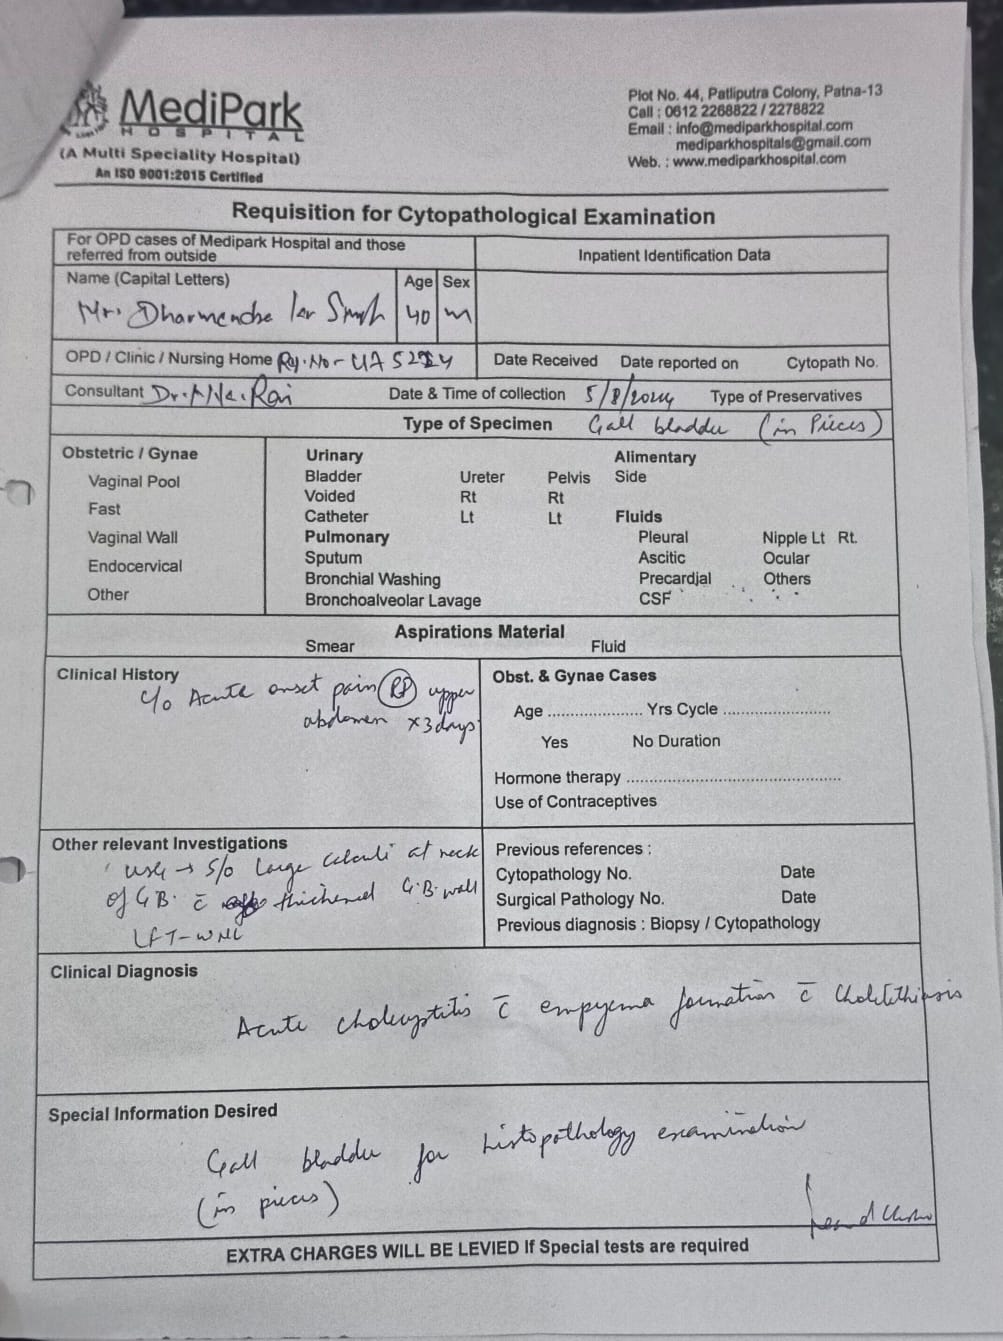 MediPark
HOSPITAL
(A Multi Speciality Hospital)
An ISO 9001:2015 Certified
Plot No. 44, Patliputra Colony, Patna-13
Call : 0612 2268822 / 2278822
Email : info@mediparkhospital.com
mediparkhospitals@gmail.com
Web. : www.mediparkhospital.com
Requisition for Cytopathological Examination
For OPD cases of Medipark Hospital and those
referred from outside
Inpatient Identification Data
Name (Capital Letters) Age Sex
Mr. Dharmendra Singh 40 M
OPD / Clinic / Nursing Home Date Received Date reported on Cytopath No.
Consultant Dr. Rai Date & Time of collection 5/8/2024 Type of Preservatives
Type of Specimen Gall bladder (in Pieces)
Obstetric / Gynae
Vaginal Pool
Fast
Vaginal Wall
Endocervical
Other
Urinary
Bladder Ureter Pelvis
Voided Rt Rt
Catheter Lt Lt
Pulmonary
Sputum
Bronchial Washing
Bronchoalveolar Lavage
Alimentary
Side
Fluids
Pleural Nipple Lt Rt.
Ascitic Ocular
Precardjal Others
CSF
Aspirations Material
Smear Fluid
Clinical History
c/o Acute onset pain upper
abdomen x3days
Obst. & Gynae Cases
Age ..................... Yrs Cycle ........................
Yes No Duration
Hormone therapy ................................................
Use of Contraceptives
Other relevant Investigations
USG → S/o large calculi at neck
of G.B. c̄ thickened G.B. wall
LFT-WNL
Previous references :
Cytopathology No. Date
Surgical Pathology No. Date
Previous diagnosis : Biopsy / Cytopathology
Clinical Diagnosis
Acute cholecystitis c̄ empyema formation c̄ Cholelithiasis
Special Information Desired
Gall bladder for histopathology examination
(in pieces)
EXTRA CHARGES WILL BE LEVIED If Special tests are required